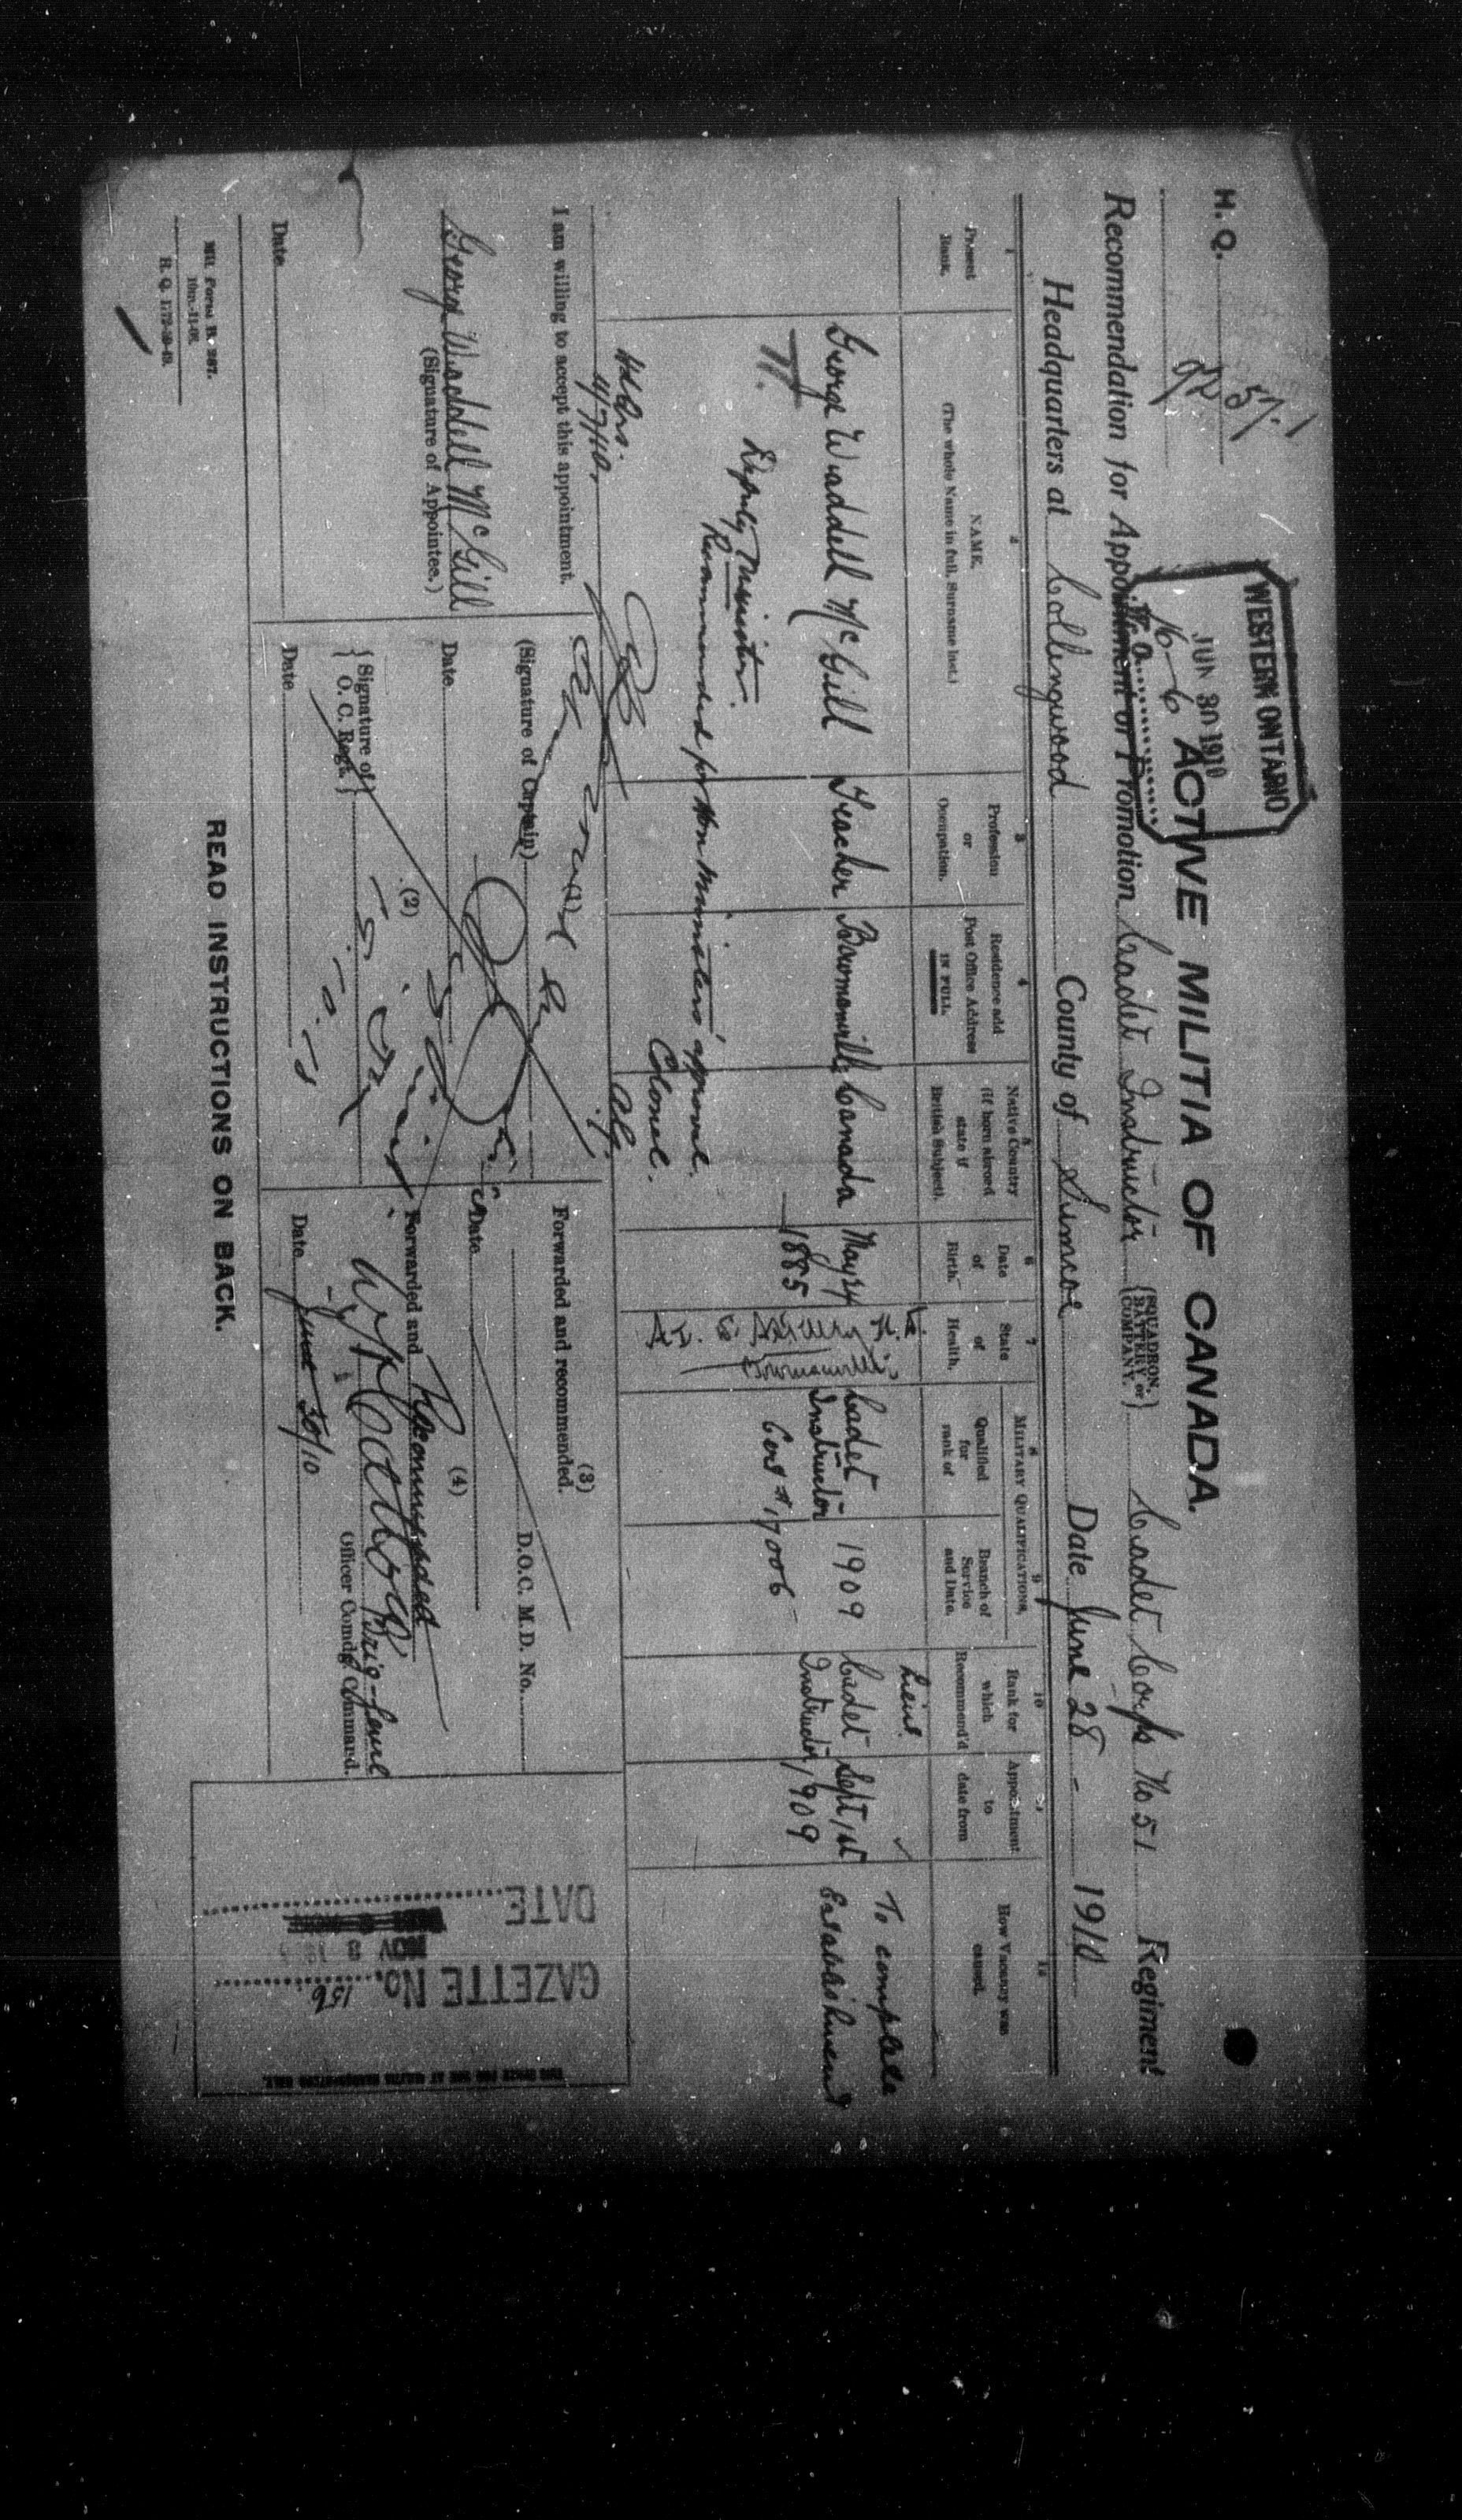 H. Q.
WESTERN ONTARIO
JUN 30 1910
16-6
ACTIVE MILITIA OF CANADA.
Recommendation for Appointment or Promotion Cadet Instructor {SQUADRON, BATTERY or COMPANY.} Cadet Corps No 51 Regiment
Headquarters at Collingwood County of Simcoe Date June 28 - 1910
1 2 3 4 5 6 7 8 9 10 11 12
MILITARY QUALIFICATIONS.
Present Rank.
NAME.
(The whole Name in full. Surname last.)
Profession or Occupation.
Residence and Post Office Address IN FULL.
Native Country (if born abroad state if British Subject).
Date of Birth.
State of Health.
Qualified for rank of
Branch of Service and Date.
Rank for which Recommend'd
Appointment to date from
How Vacancy was caused.
George Waddell McGill
Teacher
Bowmanville
Canada
May 24 1885
Bowmanville
Cadet Instructor
1909
Cert # 17006
Lieut.
Cadet Instructor
Sept 1st 1909
To complete Establishment
Deputy Minister.
Recommended for Hon Minister's approval.
Colonel.
A.G.
11/7/10.
I am willing to accept this appointment.
George Waddell McGill
(Signature of Appointee.)
Date
(1)
(Signature of Captain)
Date
(2)
{Signature of O. C. Regt.}
Date
(3)
Forwarded and recommended.
D.O.C. M.D. No.
Date
(4)
Forwarded and Recommended
Brig-Genl
Officer Comdg. Command.
Date June 30/10
GAZETTE No. 156
DATE
NOV
THIS SPACE FOR USE AT MILITIA HEADQUARTERS ONLY.
Mil. Form B. 267.
10m.-11-08.
H. Q. 1772-39-49.
READ INSTRUCTIONS ON BACK.